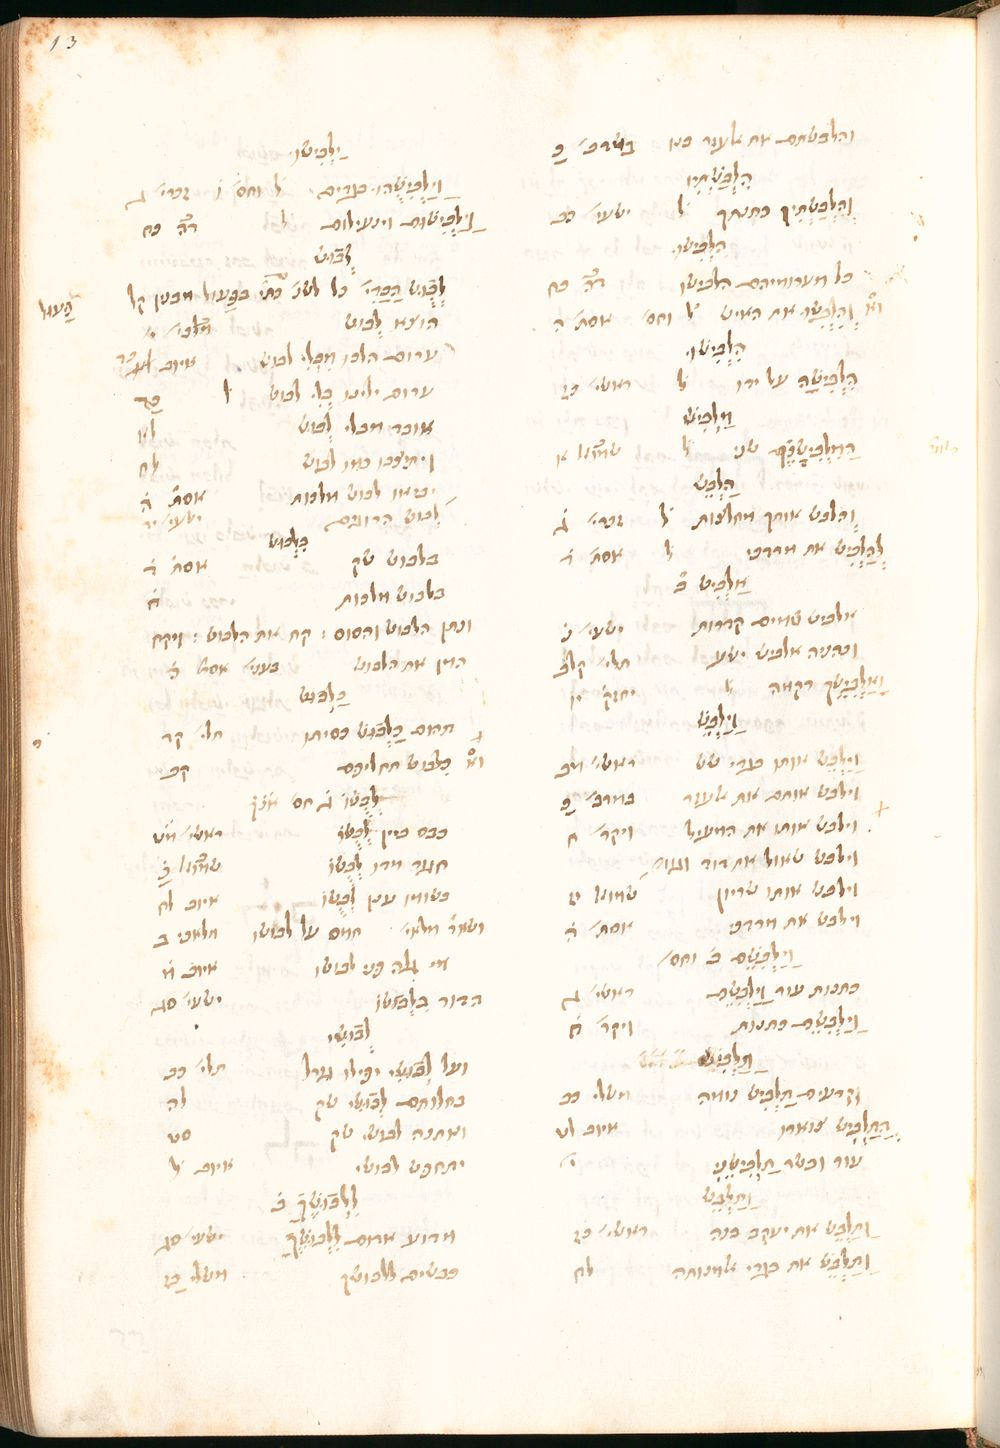 13
והלבשתם את אלעזר בנו במדבר׳ כ
הִלְבַּשְׁתִּיו
וְהִלְבַּשְׁתִּיו כתנתך ל׳ ישעי׳ כב
הלבישו
כל מערומיהם הלבישו דה כח
וא׳ וְהִלְבִּשׁוּ את האיש ל׳ וחס׳ אסת׳ ה
הִלְבִּישׁוּ
הִלְבִּישָׁה על ידו ל׳ ראשי׳ כז
מַלְבִּישׁ
הַמַּלְבִּשְׁכֶם שני ל׳ שמוא׳ א
הַלְבֵּשׁ
והלבש אותך מחלצות ל׳ זכרי׳ ג
לְהַלְבִּישׁ את מרדכי ל׳ אסת׳ ד
אַלְבִּישׁ ב׳
אלביש שמים קדרות ישעי׳ נ
וכהניה אלביש ישע תלי׳ קלב
וָאַלְבִּישֵׁךְ רקמה ל׳ יחזק׳ יו
וַיַּלְבֵּשׁ
וַיַּלְבֵּשׁ אותו בגדי שש ראשי׳ מב
וילבש אותם את אלעזר במדב׳ כ
וילבש אותו את המעיל ויקר׳ ח
וילבש שאול את דוד וגומ׳
וילבש אותו שריון שמוא׳ יז
וילבש את מרדכי אסת׳ ו
וַיַּלְבִּשֵׁם ב׳ וחס׳
כתנות עור וַיַּלְבִּשֵׁם ראשי׳ ג
וַיַּלְבִּשֵׁם כתנות ויקר׳ ח
תַּלְבִּישׁ
וקרעים תַּלְבִּישׁ נומה משלי כג
הֲתַלְבִּישׁ צוארו איוב לט
עור ובשר תַּלְבִּישֵׁנִי י׳
וַתַּלְבֵּשׁ
וַתַּלְבֵּשׁ את יעקב בנה ראשי׳ כז
וַתַּלְבֵּשׁ את בגדי אלמנותה לח
יַלְבִּישׁוּ
וַיַּלְבִּשֻׁהוּ בגדים ל׳ וחס׳ ו׳ זכרי׳ ג
וַיַּלְבִּישׁוּם וינעילום ל׳ דה כח
לְבוּשׁ
העול
הוצא לבוש מלכי׳ י׳
ערום הלכו מבלי לבוש איוב כד
ערום ילינו בְּלִי לבוש ל׳ כד
אובד מבלי לְבוּשׁ לא
ויתיצבו כמו לבוש לח
יביאו לבוש מלכות אסת׳ ו
לבוש הרוגים ישעי׳ יד
בִּלְבוּשׁ
בלבוש שק אסת׳ ד
בלבוש מלכות ח
ונתן הלבוש והסוס : קח את הלבוש : ויקח
המן את הלבוש בעני׳ אסת׳ ו
כַּלְּבוּשׁ
תהום כַּלְּבוּשׁ כסיתו תלי׳ קד
וא׳ כלבוש תחליפם קב
לְבֻשׁוֹ
כבס ביין לְבֻשׁוֹ ראשי׳ מט
חגור מדו לְבֻשׁוֹ שמוא׳ כ
בשומי ענן לְבֻשׁוֹ איוב לח
ושאר׳ מלאי׳ חמס על לבושו מלאכי ב
מי גלה פני לבושו איוב מ
הדור בִּלְבוּשׁוֹ ישעי׳ סג
לְבוּשִׁי
ועל לְבוּשִׁי יפילו גורל תלי׳ כב
בחלותם לְבוּשִׁי שק לה
ואתנה לבושי שק סט
יתחפש לבושי איוב ל
לִלְבוּשֶׁךָ ב׳
מדוע אדום לִלְבוּשֶׁךָ ישעי׳ סג
כבשים ללבושך משלי כז